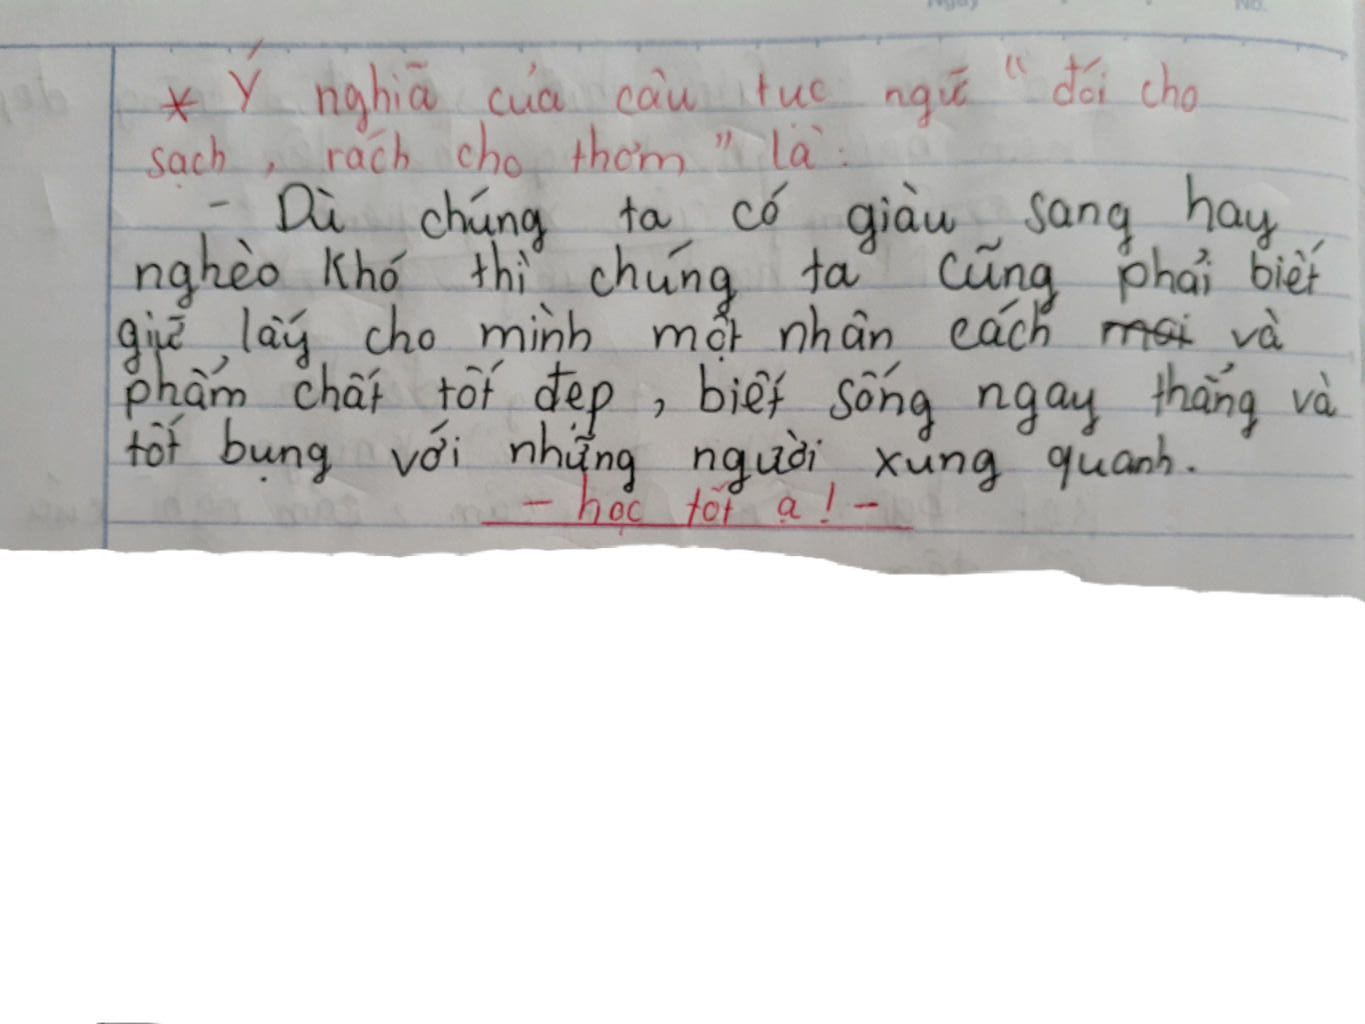 * Ý nghĩa của câu tục ngữ "đói cho
sạch, rách cho thơm" là:
- Dù chúng ta có giàu sang hay
nghèo khó thì chúng ta cũng phải biết
giữ lấy cho mình một nhân cách mai và
phẩm chất tốt đẹp, biết sống ngay thẳng và
tốt bụng với những người xung quanh.
- học tốt ạ! -